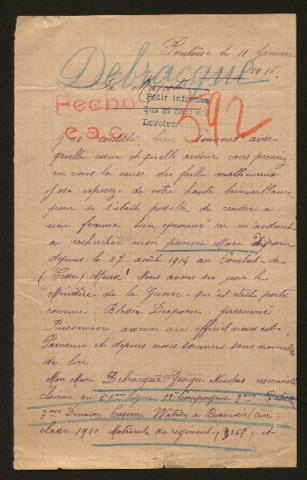 Pontoise le 11 Janvier
1916
Debracque
Sa Majesté
Fecho
c.a.c.
Pedir informes
Devolver
592
quelle cœur et quelle ardeur vous prenez
en vous la cause des faible malheureux
J'ose espérez de votre haute bienveillance
pour si s'était possible de rendre a
une femme bien éprouvé en m'aidant
a rechercher mon pauvre Mari Disparu
depuis le 27 août 1914 au Combat de
(Cesse) Meuse! Nous avons su par le
Ministère de la Guerre qu'il était porté
comme Blessé Disparu présumé
Prisonnier aucun avis officiel nous est
Parvenu et depuis nous sommes sans nouvelle
de lui
Mon Mari Debracque Georges Nicolas réserviste
clairon au 51me Ligne 12e Compagnie 3me
3me Division Caserne Watrin a Beauvais (Oise)
classe 1910 Matricule du régiment, 3168, et